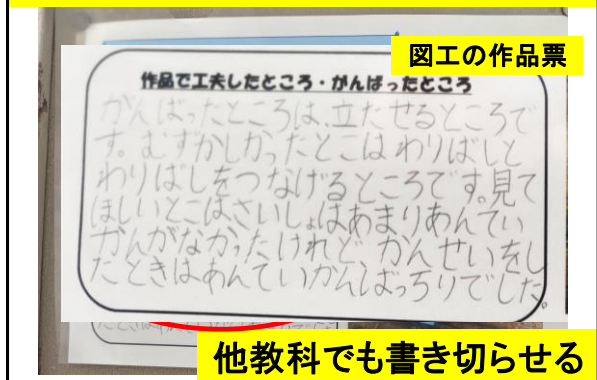 図工の作品票
作品で工夫したところ・がんばったところ
がんばったところは、立たせるところで
す。むずかしかったとこはわりばしと
わりばしをつなげるところです。見て
ほしいとこはさいしょはあまりあんてい
かんがなかったけれど、かんせいをし
たときはあんていかんばっちりでした。
他教科でも書き切らせる